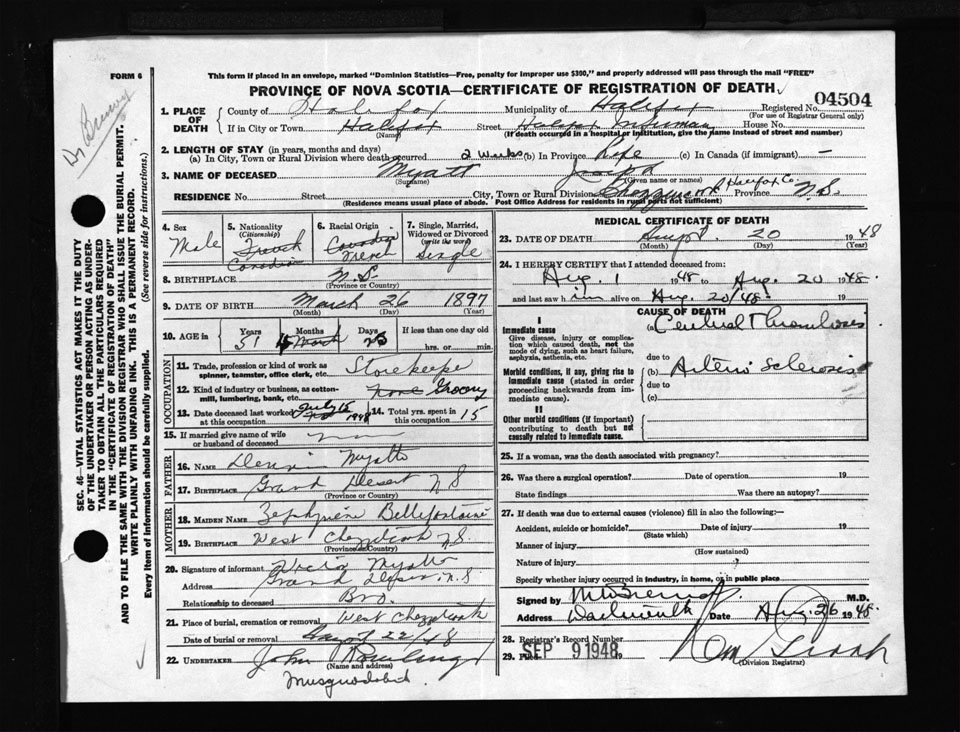 FORM 6
This form if placed in an envelope, marked "Dominion Statistics—Free, penalty for improper use $300," and properly addressed will pass through the mail "FREE"
PROVINCE OF NOVA SCOTIA—CERTIFICATE OF REGISTRATION OF DEATH
1. PLACE OF DEATH
County of Halifax Municipality of Halifax Registered No. 04504
(For use of Registrar General only)
If in City or Town Halifax Street Halifax Infirmary House No.
(Name) (If death occurred in a hospital or institution, give the name instead of street and number)
2. LENGTH OF STAY (in years, months and days)
(a) In City, Town or Rural Division where death occurred 2 weeks (b) In Province Life (c) In Canada (if immigrant) —
3. NAME OF DECEASED Myatt Joseph
(Surname) (Given name or names)
RESIDENCE No. Street City, Town or Rural Division Chezzetcook Halifax Co. Province N.S.
(Residence means usual place of abode. Post Office Address for residents in rural parts not sufficient)
4. Sex
Male
5. Nationality
(Citizenship)
French
Canadian
6. Racial Origin
Canadian
French
7. Single, Married, Widowed or Divorced
(write the word)
Single
8. BIRTHPLACE N.S.
(Province or Country)
9. DATE OF BIRTH March 26 1897
(Month) (Day) (Year)
10. AGE in Years Months Days If less than one day
51 hrs. or min.
OCCUPATION
11. Trade, profession or kind of work as spinner, teamster, office clerk, etc. Storekeeper
12. Kind of industry or business, as cotton-mill, lumbering, bank, etc. Grocery
13. Date deceased last worked at this occupation July 15 1948
14. Total yrs. spent in 15
15. If married give name of wife or husband of deceased
FATHER
16. NAME Dennis Myatt
17. BIRTHPLACE Grand Desert N S
(Province or Country)
MOTHER
18. MAIDEN NAME Zephyrine Bellefontaine
19. BIRTHPLACE West Chezzetcook N.S.
(Province or Country)
20. Signature of informant Myatt
Address Grand Desert, N.S
Relationship to deceased Bro.
21. Place of burial, cremation or removal West Chezzetcook
Date of burial or removal 22/48
22. UNDERTAKER John Rowlings
(Name and address)
Musquodoboit
MEDICAL CERTIFICATE OF DEATH
23. DATE OF DEATH August 20 1948
(Month) (Day) (Year)
24. I HEREBY CERTIFY that I attended deceased from:
Aug. 1 1948 to Aug. 20 1948.
and last saw him alive on Aug. 20/48. 19
CAUSE OF DEATH
I
Immediate cause
Give disease, injury or complication which caused death, not the mode of dying, such as heart failure, asphyxia, asthenia, etc.
(a) Cerebral Thrombosis
due to
Morbid conditions, if any, giving rise to immediate cause (stated in order proceeding backwards from immediate cause).
(b) Arterio Sclerosis
due to
(c)
II
Other morbid conditions (if important) contributing to death but not causally related to immediate cause.
25. If a woman, was the death associated with pregnancy?
26. Was there a surgical operation? Date of operation 19
State findings Was there an autopsy?
27. If death was due to external causes (violence) fill in also the following:—
Accident, suicide or homicide? Date of injury 19
(State which)
Manner of injury
(How sustained)
Nature of injury
Specify whether injury occurred in industry, in home, or in public place
Signed by M.D.
Address Dartmouth Date Aug. 26 1948.
28. Registrar's Record Number
29. Filed SEP 9 1948 19
(Division Registrar)
SEC. 46—VITAL STATISTICS ACT MAKES IT THE DUTY OF THE UNDERTAKER OR PERSON ACTING AS UNDERTAKER TO OBTAIN ALL THE PARTICULARS REQUIRED IN THE "CERTIFICATE OF REGISTRATION OF DEATH" AND TO FILE THE SAME WITH THE DIVISION REGISTRAR WHO SHALL ISSUE THE BURIAL PERMIT.
WRITE PLAINLY WITH UNFADING INK. THIS IS A PERMANENT RECORD.
Every item of information should be carefully supplied. (See reverse side for instructions.)